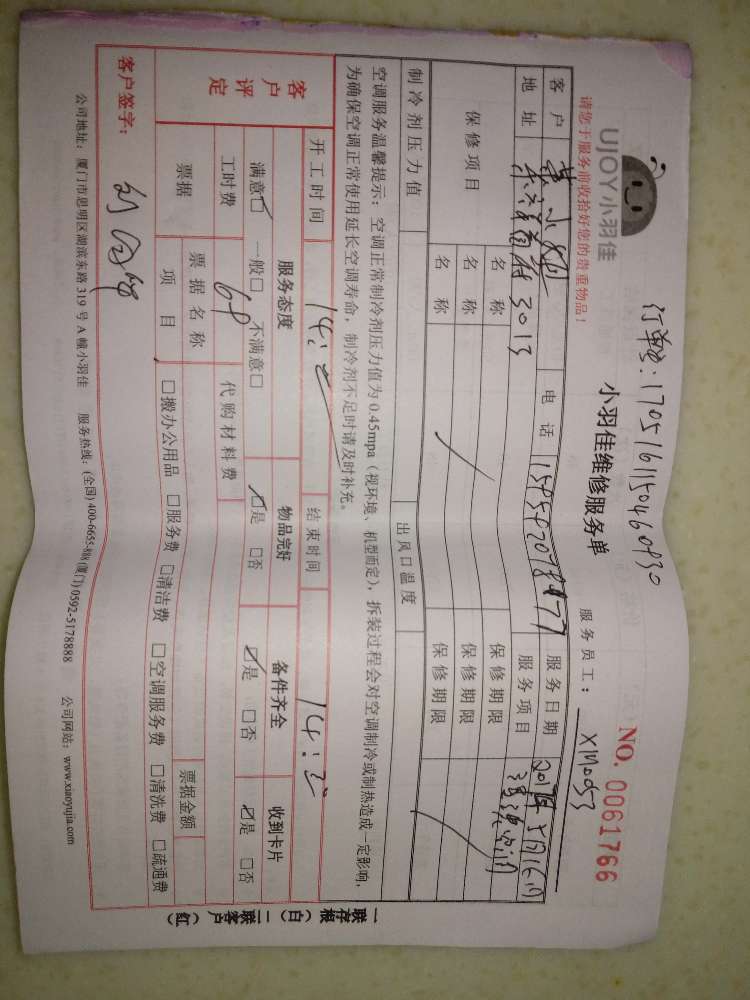 订单号:1705161150460930
UJOY小羽佳
小羽佳维修服务单
NO. 0061766
请您于服务前收拾好您的贵重物品!
服务员工: XM0053
客户 小姐 电话 服务日期 2017年5月16日
地址 3013 服务项目
保修项目 名称 保修期限
名称 保修期限
名称 保修期限
制冷剂压力值 出风口温度
空调服务温馨提示:空调正常制冷剂压力值为0.45mpa(视环境、机型而定),拆装过程会对空调制冷或制热造成一定影响,
为确保空调正常使用延长空调寿命,制冷剂不足时请及时补充。
开工时间 结束时间
客户评定
服务态度 物品完好 备件齐全 收到卡片
满意☑ 一般□ 不满意□ ☑是 □否 ☑是 □否 ☑是 □否
工时费 64 代购材料费
票据 票据名称 票据金额
项目 □搬办公用品 □服务费 □清洁费 □空调服务费 □清洗费 □疏通费
客户签字:
公司地址:厦门市思明区湖滨东路319号A幢小羽佳 服务热线:(全国)400-6655-888(厦门)0592-5178888 公司网站:www.xiaoyujia.com
一联存根(白)二联客户(红)